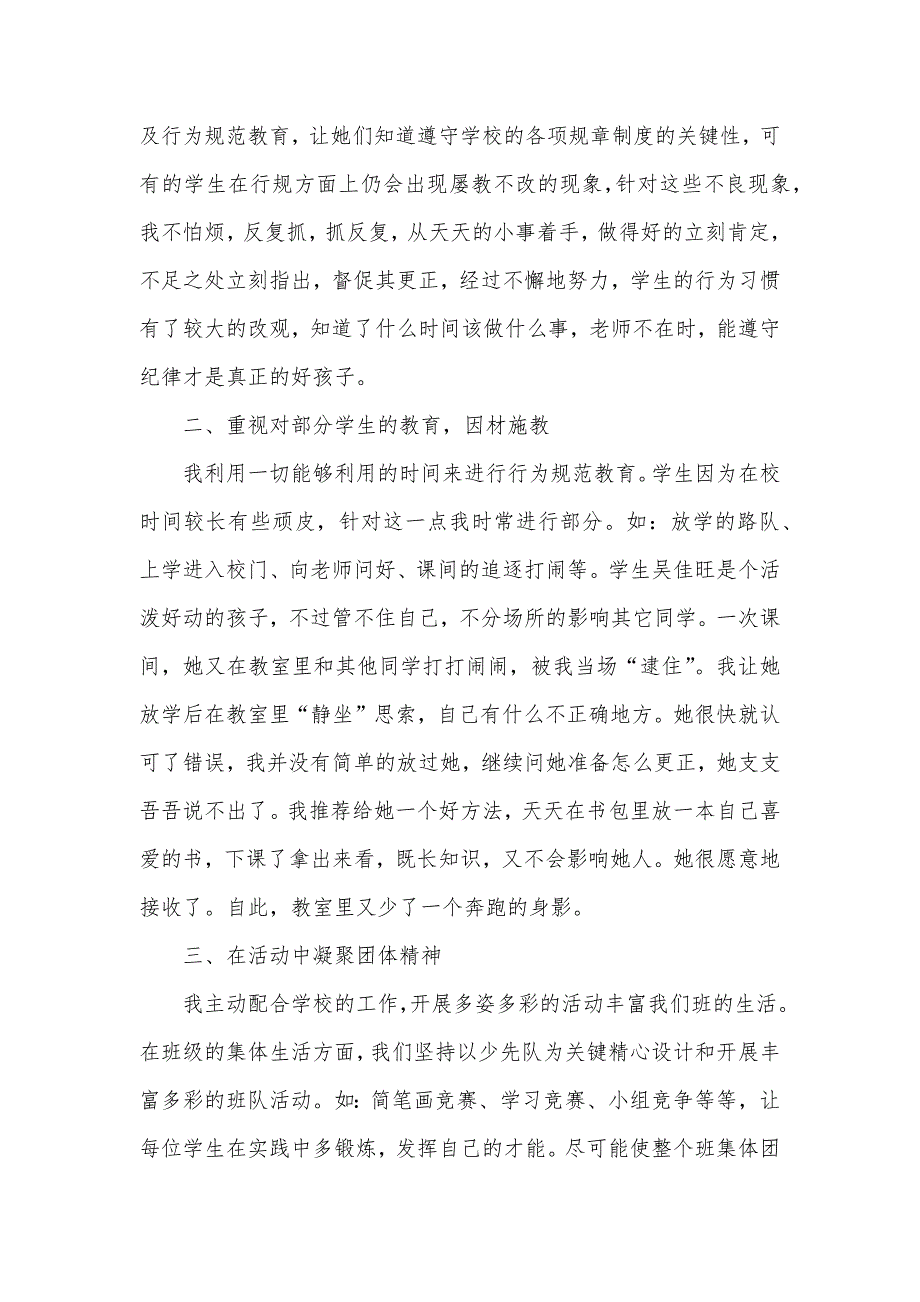 及行为规范教育，让她们知道遵守学校的各项规章制度的关键性，可
有的学生在行规方面上仍会出现屡教不改的现象，针对这些不良现象，
我不怕烦，反复抓，抓反复，从天天的小事着手，做得好的立刻肯定，
不足之处立刻指出，督促其更正，经过不懈地努力，学生的行为习惯
有了较大的改观，知道了什么时间该做什么事，老师不在时，能遵守
纪律才是真正的好孩子。
二、重视对部分学生的教育，因材施教
我利用一切能够利用的时间来进行行为规范教育。学生因为在校
时间较长有些顽皮，针对这一点我时常进行部分。如：放学的路队、
上学进入校门、向老师问好、课间的追逐打闹等。学生吴佳旺是个活
泼好动的孩子，不过管不住自己，不分场所的影响其它同学。一次课
间，她又在教室里和其他同学打打闹闹，被我当场“逮住”。我让她
放学后在教室里“静坐”思索，自己有什么不正确地方。她很快就认
可了错误，我并没有简单的放过她，继续问她准备怎么更正，她支支
吾吾说不出了。我推荐给她一个好方法，天天在书包里放一本自己喜
爱的书，下课了拿出来看，既长知识，又不会影响她人。她很愿意地
接收了。自此，教室里又少了一个奔跑的身影。
三、在活动中凝聚团体精神
我主动配合学校的工作，开展多姿多彩的活动丰富我们班的生活。
在班级的集体生活方面，我们坚持以少先队为关键精心设计和开展丰
富多彩的班队活动。如：简笔画竞赛、学习竞赛、小组竞争等等，让
每位学生在实践中多锻炼，发挥自己的才能。尽可能使整个班集体团